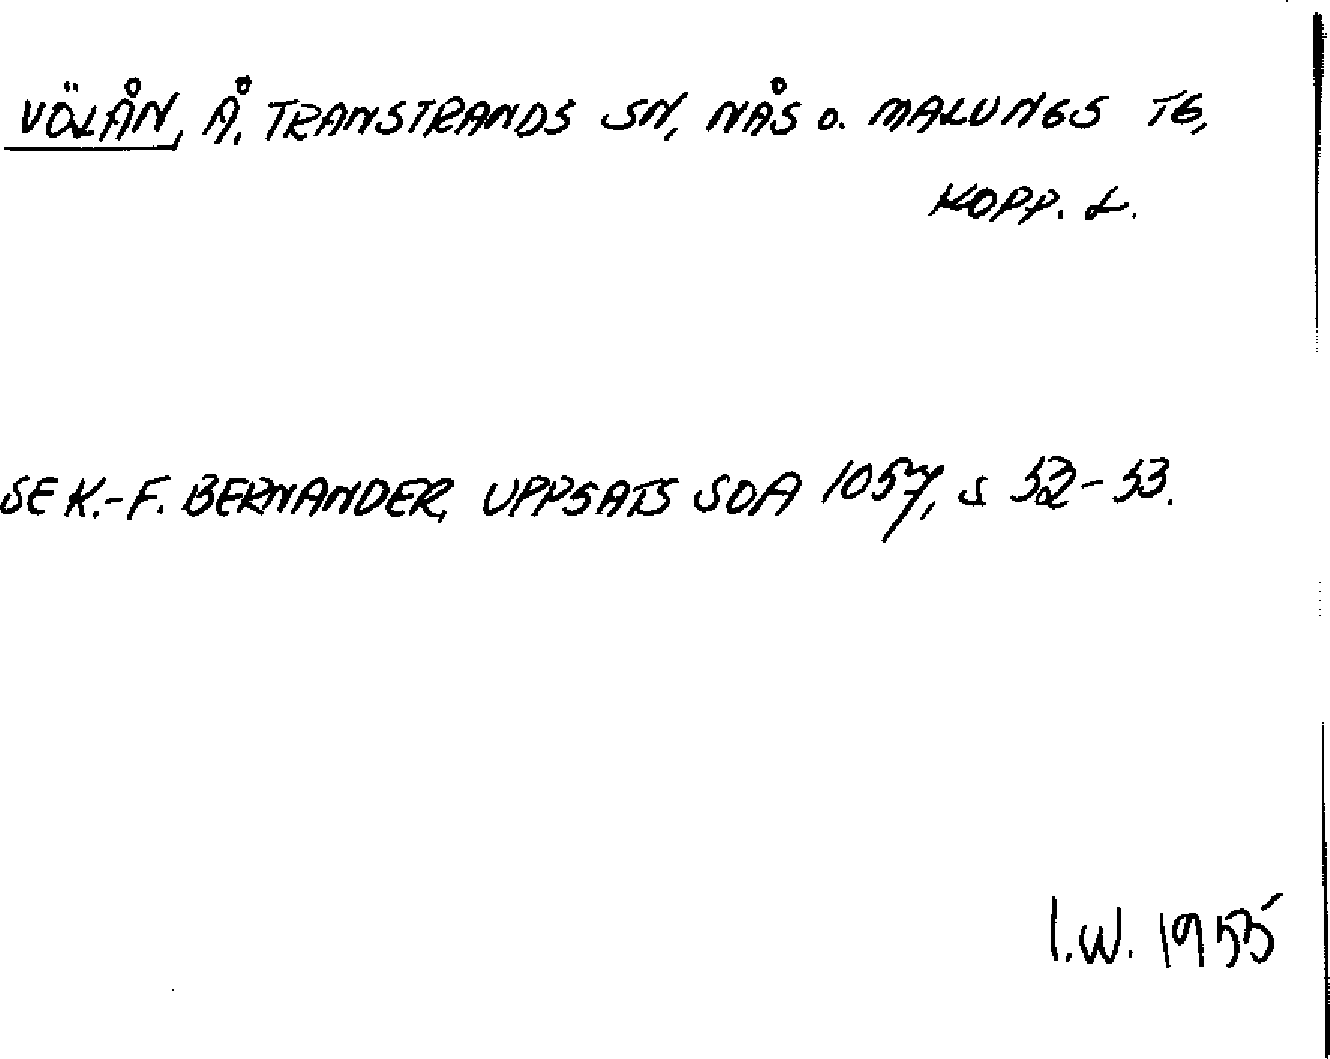 VÖLÅN, Å. TRANSTRANDS SN, NÅS o. MALUNGS TG,
KOPP. L.
SE K.-F. BERNANDER, UPPSATS SOA 1057, s 52-53.
I.W. 1955